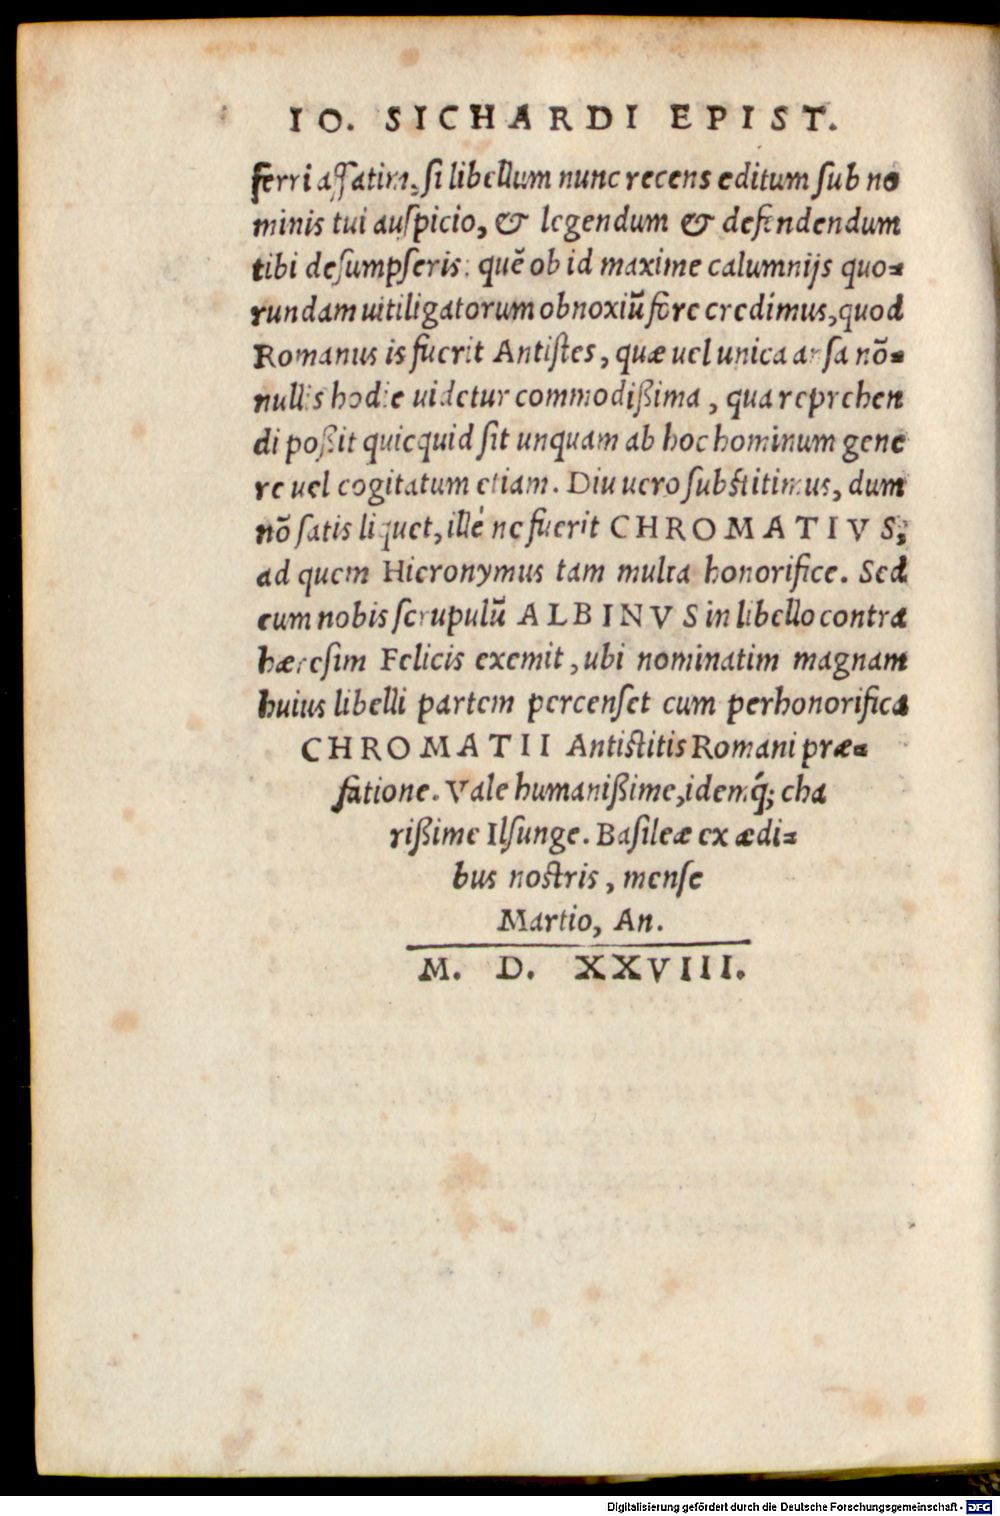 IO. SICHARDI EPIST.
ferri affatim, si libellum nunc recens editum sub no
minis tui auspicio, & legendum & defendendum
tibi desumpseris: quē ob id maxime calumnijs quo=
rundam uitiligatorum obnoxiū fore credimus, quod
Romanus is fuerit Antistes, quæ uel unica ansa nō=
nullis hodie uidetur commodißima, qua reprehen
di poßit quicquid sit unquam ab hoc hominum gene
re uel cogitatum etiam. Diu uero substitimus, dum
nō satis liquet, illé ne fuerit CHROMATIVS,
ad quem Hieronymus tam multa honorifice. Sed
cum nobis scrupulū ALBINVS in libello contra
hæresim Felicis exemit, ubi nominatim magnam
huius libelli partem percenset cum perhonorifica
CHROMATII Antistitis Romani præ=
fatione. Vale humanißime, idemq́; cha
rißime Ilsunge. Basileæ ex ædi=
bus nostris, mense
Martio, An.
M. D. XXVIII.
Digitalisierung gefördert durch die Deutsche Forschungsgemeinschaft - DFG